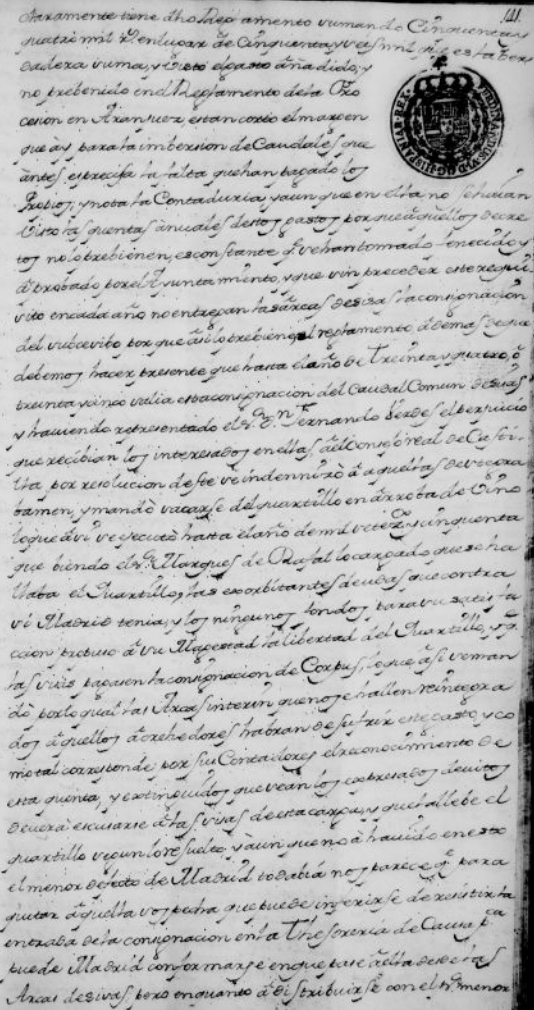 141.
claramente tiene dho Reglamento sumando Cinquenta y
quatro mil rs. en lugar de Cinquenta y tres mil que es la ver
dadera suma, y visto el gasto añadido, y
no prebenido en el Reglamento de la Pro
cesion en Aranjuez, es tan corto el margen
que ay para la imbersion de Caudales que
antes es precisa la falta que han pagado los
Propios, y nota la Contaduria, y aun que en ella no se hallan
visto las quentas anuales destos gastos por que aquellos Decre
tos no lo prebienen, es constante qe. se han tomado fenecido y
aprobado por el Ayuntamiento, y que sin preceder este requi-
sito en cada año, no entregan las arcas de sisas la consignacion
del subcesivo por que asi lo prebiene el reglamento, ademas de que
debemos hacer presente que hasta el año de Treinta y quatro, o
treinta y cinco salia esta consignacion del Caudal Comun de sisas
y haciendo representado el Sr. Dn. Fernando Verdes el perjuicio
que recibian los interesados en ellas, al Consejo real de Casti-
lla, por resolucion deste se indennizò a aquellas de este gra
bamen, y mandò sacarse del quartillo en arroba de Vino
lo que asi se ejecutò hasta el año de mil setezs. y cinquenta
que biendo el Sr. Marques de Rafal lo cargado que se ha
llaba el Quartillo, las exorbitantes deudas que contra
si Madrid tenia, y los ningunos fondos para su satisfa
ccion propuso a su Magestad la libertad del Quartillo, y q.
las sisas pagasen la consignacion de Corpus, lo que asi se man
dò por lo qual las Arcas interin que no se hallen reintegra
dos aquellos acrehedores habran de sufrir este gasto, y co
mo tal corresponde por sus Contadores el reconocimiento de
esta quenta, y extinguidos que sean los expresados devitos
deverà escusarse a las sisas de esta carga, y que la llebe el
quartillo segun lo resuelto, y aun que no à havido en esto
el menor defecto de Madrid todabia nos parece qe. para
quitar aquella sospecha que puede inferirse de resistir la
entrada de la consignacion en la Thesoreria de Causa pca.
puede Madrid conformarse en que pase a ella desde las
Arcas de sisas, pero en quanto a distribuirse con el Pr. menor